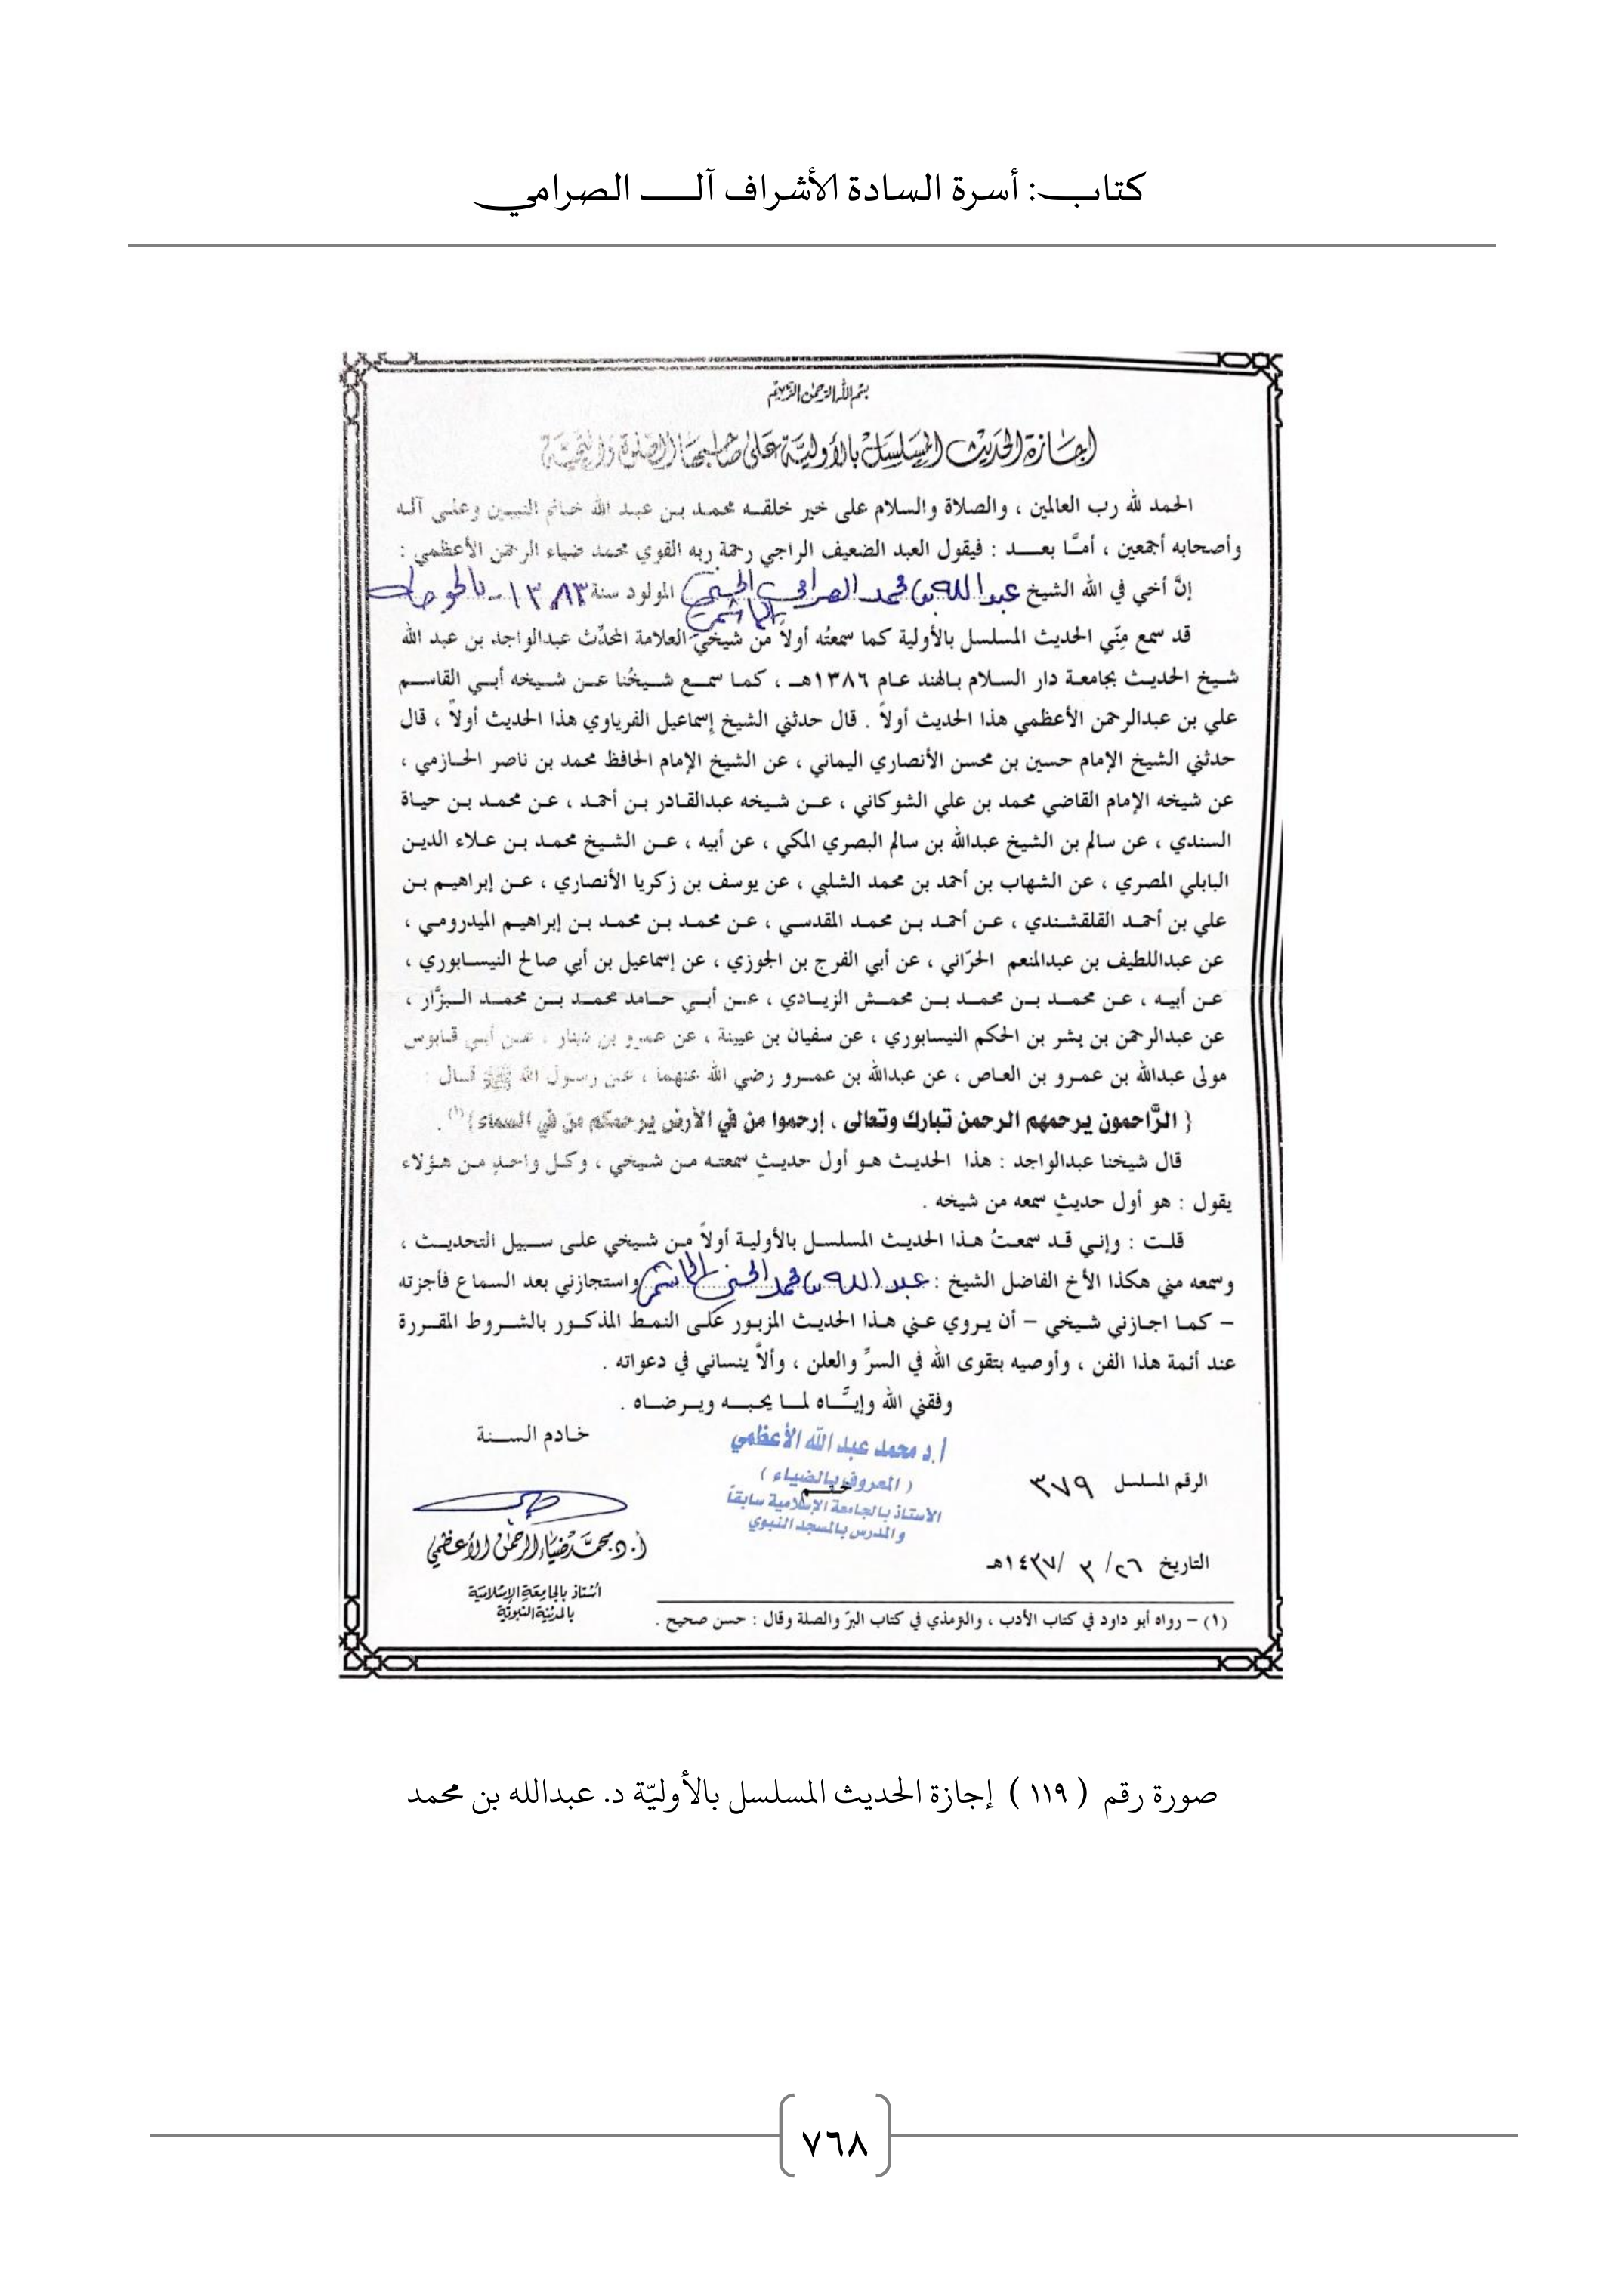 كتاب: أسرة السادة الأشراف آل الصرامي
بسم الله الرحمن الرحيم
إجازة الحديث المسلسل بالأولية على صاحبها الصلوة والتحية
الحمد لله رب العالمين ، والصلاة والسلام على خير خلقه محمد بن عبد الله خاتم النبيين وعلى آله
وأصحابه أجمعين ، أمَّا بعد : فيقول العبد الضعيف الراجي رحمة ربه القوي محمد ضياء الرحمن الأعظمي :
إنَّ أخي في الله الشيخ عبدالله بن محمد الصرامي الحسني الهاشمي المولود سنة ١٣٨٣ -
قد سمع مِنّي الحديث المسلسل بالأولية كما سمعتُه أولاً من شيخي العلامة المحدِّث عبدالواجد بن عبد الله
شيخ الحديث بجامعة دار السلام بالهند عام ١٣٨٦هـ ، كما سمع شيخُنا عن شيخه أبي القاسم
علي بن عبدالرحمن الأعظمي هذا الحديث أولاً . قال حدثني الشيخ إسماعيل الفرياوي هذا الحديث أولاً ، قال
حدثني الشيخ الإمام حسين بن محسن الأنصاري اليماني ، عن الشيخ الإمام الحافظ محمد بن ناصر الحازمي ،
عن شيخه الإمام القاضي محمد بن علي الشوكاني ، عن شيخه عبدالقادر بن أحمد ، عن محمد بن حياة
السندي ، عن سالم بن الشيخ عبدالله بن سالم البصري المكي ، عن أبيه ، عن الشيخ محمد بن علاء الدين
البابلي المصري ، عن الشهاب بن أحمد بن محمد الشلبي ، عن يوسف بن زكريا الأنصاري ، عن إبراهيم بن
علي بن أحمد القلقشندي ، عن أحمد بن محمد المقدسي ، عن محمد بن محمد بن إبراهيم الميدرومي ،
عن عبداللطيف بن عبدالمنعم الحرّاني ، عن أبي الفرج بن الجوزي ، عن إسماعيل بن أبي صالح النيسابوري ،
عن أبيه ، عن محمد بن محمد بن محمش الزيادي ، عن أبي حامد محمد بن محمد البزَّار ،
عن عبدالرحمن بن بشر بن الحكم النيسابوري ، عن سفيان بن عيينة ، عن عمرو بن دينار ، عن أبي قابوس
مولى عبدالله بن عمرو بن العاص ، عن عبدالله بن عمرو رضي الله عنهما ، عن رسول الله ﷺ قال :
{ الرَّاحمون يرحمهم الرحمن تبارك وتعالى ، إرحموا من في الأرض يرحمكم من في السماء }(١) .
قال شيخنا عبدالواجد : هذا الحديث هو أول حديثٍ سمعته من شيخي ، وكل واحدٍ من هؤلاء
يقول : هو أول حديثٍ سمعه من شيخه .
قلت : وإني قد سمعتُ هذا الحديث المسلسل بالأولية أولاً من شيخي على سبيل التحديث ،
وسمعه مني هكذا الأخ الفاضل الشيخ : عبدالله بن محمد الحسني الهاشمي واستجازني بعد السماع فأجزته
– كما اجازني شيخي – أن يروي عني هذا الحديث المزبور على النمط المذكور بالشروط المقررة
عند أئمة هذا الفن ، وأوصيه بتقوى الله في السرِّ والعلن ، وألاَّ ينساني في دعواته .
وفقني الله وإيَّاه لما يحبه ويرضاه .
خادم السنة
أ.د محمد عبد الله الأعظمي
( المعروف بالضياء )
ختم
الاستاذ بالجامعة الإسلامية سابقاً
والمدرس بالمسجد النبوي
الرقم المسلسل ٣٧٩
أ.د محمد ضياء الرحمن الأعظمي
أستاذ بالجامعة الإسلامية
بالمدينة النبوية
التاريخ ٢٦/ ٣ /١٤٣٧هـ
(١) – رواه أبو داود في كتاب الأدب ، والترمذي في كتاب البرّ والصلة وقال : حسن صحيح .
صورة رقم ( ١١٩ ) إجازة الحديث المسلسل بالأوليّة د. عبدالله بن محمد
٧٦٨